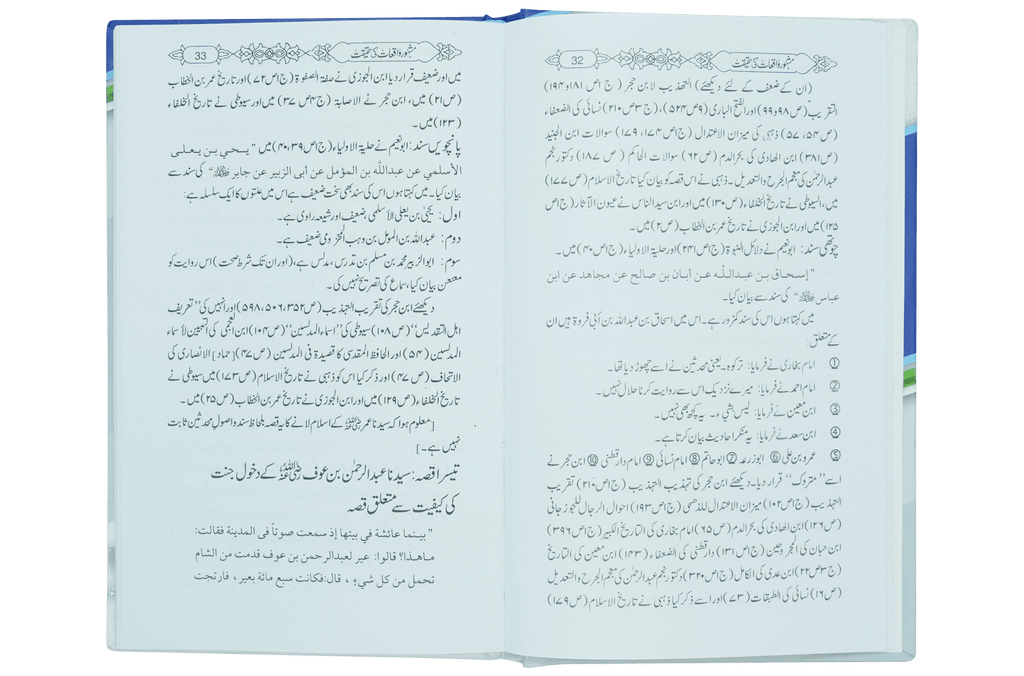 مشہور واقعات کی حقیقت
32
(ان کے ضعف کے لئے دیکھئے) التھذیب لابن حجر (ج۱ص۱۸۱و۱۹۴)
التقریب (ص۹۸و۹۹) اور الفتح الباری (۹ص۵۲۴)، (ج۳ص۲۱۰) نسائی کی الضعفاء
(ص۵۴، ۵۷) ذہبی کی میزان الاعتدال (ج۱ص۱۷۴، ۱۷۹) سوالات ابن الجنید
(ص۳۸۱) ابن الھادی کی بحرالدم (ص۶۲) سوالات الحاکم (ص۱۸۷) دکتور نجم
عبدالرحمٰن کی معجم الجرح والتعدیل۔ ذہبی نے اس قصہ کو بیان کیا تاریخ الاسلام (ص۱۷۷)
میں، السیوطی نے تاریخ الخلفاء (ص۱۳۰) میں اور ابن سید الناس نے عیون الآثار (ج۱ص
۱۲۵) میں اور ابن الجوزی نے تاریخ عمر بن الخطاب (ص۲) میں۔
چوتھی سند: ابونعیم نے دلائل النبوۃ (ج۱ص۲۴۱) اور حلیۃ الاولیاء (ج۱ص۴۰) میں۔
"إسحاق بن عبداللّٰہ عن أبان بن صالح عن مجاھد عن ابن
عباس ﷺ" کی سند سے بیان کیا۔
میں کہتا ہوں اس کی سند کمزور ہے۔ اس میں اسحاق بن عبداللہ بن أبی فروۃ ہیں ان
کے متعلق:
① امام بخاری نے فرمایا: ترکوہ۔ یعنی محدثین نے اسے چھوڑ دیا تھا۔
② امام احمد نے فرمایا: میرے نزدیک اس سے روایت کرنا حلال نہیں۔
③ ابن معین نے فرمایا: لیس بشيء۔ یہ کچھ بھی نہیں۔
④ ابن سعد نے فرمایا: یہ منکر احادیث بیان کرتا ہے۔
⑤ عمرو بن علی ⑥ ابوزرعہ ⑦ ابوحاتم ⑧ امام نسائی ⑨ امام دارقطنی ⑩ ابن حجر نے
اسے "متروک" قرار دیا۔ دیکھئے ابن حجر کی تہذیب التہذیب (ج۱ص۲۱۰) تقریب
التہذیب (ج۱ص۱۰۲) میزان الاعتدال للذھبی (ج۱ص۱۹۳) احوال الرجال للجوزجانی
(ص۱۲۶) ابن الھادی کی بحرالدم (ص۶۵) امام بخاری کی التاریخ الکبیر (ج۱ص۳۹۶)
ابن حبان کی المجروحین (ج۱ص۱۳۱) دارقطنی کی الضعفاء (۱۴۳) ابن معین کی التاریخ
(ج۳ص۲۲) ابن عدی کی الکامل (ج۱ص۳۲۰) دکتور نجم عبدالرحمٰن کی معجم الجرح والتعدیل
(ص۱۶) نسائی کی الطبقات (۷۳) اور اسے ذکر کیا ذہبی نے تاریخ الاسلام (ص۱۷۹)
مشہور واقعات کی حقیقت
33
میں اور ضعیف قرار دیا ابن الجوزی نے صفۃ الصفوۃ (ج۱ص۷۲) اور تاریخ عمر بن الخطاب
(ص۲۱) میں، ابن حجر نے الاصابۃ (ج۴ص۳۷) میں اور سیوطی نے تاریخ الخلفاء
(۱۲۳) میں۔
پانچویں سند: ابونعیم نے حلیۃ الاولیاء (ج۱ص۴۰،۳۹) میں "یحیی بن یعلی
الأسلمي عن عبداللّٰہ بن المؤمل عن أبی الزبیر عن جابر ﷺ" کی سند سے
بیان کیا۔ میں کہتا ہوں اس کی سند بھی سخت ضعیف ہے اس میں علتوں کا ایک سلسلہ ہے:
اول: یحیٰی بن یعلی الأسلمی ضعیف اور شیعہ راوی ہے۔
دوم: عبداللہ بن المومل بن وہب المخزومی ضعیف ہے۔
سوم: ابوالزبیر محمد بن مسلم بن تدرس، مدلس ہے، (اور ان تک شرط صحت) اس روایت کو
معنعن بیان کیا، سماع کی تصریح نہیں کی۔
دیکھئے ابن حجر کی تقریب التہذیب (ص۳۵۲، ۵۰۶، ۵۹۸) اور انہیں کی "تعریف
اہل التقدیس" (ص۱۰۸) سیوطی کی "اسماء المدلسین" (ص۱۰۴) ابن العجمی کی التبیین لأسماء
المدلسین (۵۴) اور الحافظ المقدسی کا قصیدۃ فی المدلسین (ص۴۷) [حماد] الانصاری کی
الاتحاف (ص۴۷) اور ذکر کیا اس کو ذہبی نے تاریخ الاسلام (ص۱۷۳) میں سیوطی نے
تاریخ الخلفاء (ص۱۲۹) میں اور ابن الجوزی نے تاریخ عمر بن الخطاب (ص۲۵) میں۔
[معلوم ہوا کہ سیدنا عمر رضی اللہ عنہ کے اسلام لانے کا یہ قصہ بلحاظ سند و اصولِ محدثین ثابت
نہیں ہے۔]
تیسرا قصہ: سیدنا عبدالرحمٰن بن عوف رضی اللہ عنہ کے دخول جنت
کی کیفیت سے متعلق قصہ
"بینما عائشة في بیتھا إذ سمعت صوتاً فی المدینة فقالت:
ماھذا؟ قالوا: عیر لعبدالرحمن بن عوف قدمت من الشام
تحمل من کل شيءٍ، قال: فکانت سبع مائة بعیر، فارتجت